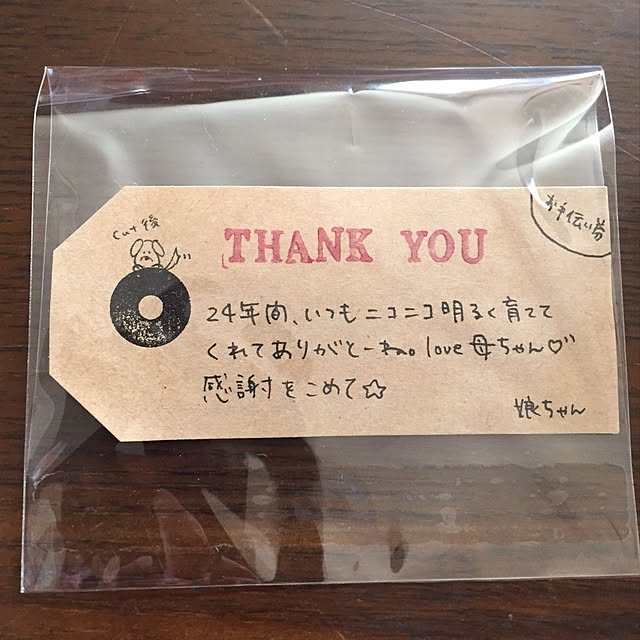 お手伝い券
Cut後
THANK YOU
24年間、いつもニコニコ明るく育てて
くれてありがとーねo。love母ちゃん♡
感謝をこめて☆
娘ちゃん